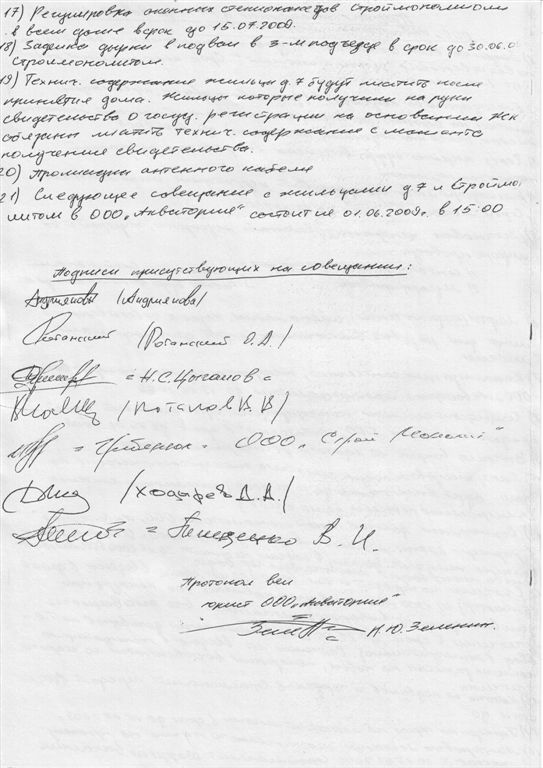 17) Регулировка оконных стеклопакетов Строймонолитом
в всем доме в срок до 15.07.2009.
18) Заделка дырки в подвал в 3-м подъезде в срок до 30.06.0
Строймонолитом.
19) Технич. содержание жильцы д.7 будут платить после
принятия дома. Жильцы которые получили на руки
свидетельства о госуд. регистрации на основании ЖК
обязаны платить технич. содержание с момента
получения свидетельства.
20) Прокладки антенного кабеля
21) Следующее совещание с жильцами д.7 и Строймо
литом в ООО „Акватория" состоится 01.06.2009г. в 15:00
Подписи присутствующих на совещании:
Андриянова /Андриянова/
Ротанский /Ротанский О.А./
= Н.С. Цыганов =
/Потапов В.В/
= = ООО „Строй Монолит"
/Ходырев Д.А./
= Пищенко В.И.
Протокол вел
юрист ООО „Акватория"
И.Ю. Зеленин.